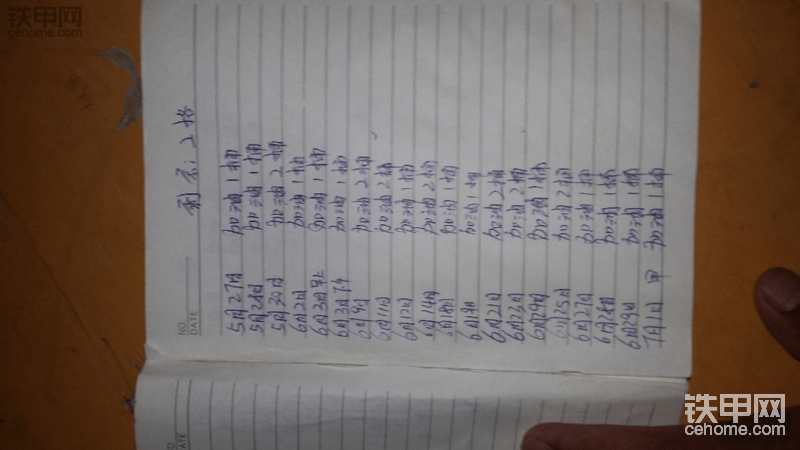 铁甲网
cehome.com
NO.
DATE
剩余:2桶
5月27日 加油 1桶
5月28日 加油 1桶
5月30日 加油 2桶
6月2日 加油 1桶
6月3日早上 加油 1桶
6月3日下午 加油 1桶
6月9日 加油 2桶
6月11日 加油 2桶
6月12日 加油 1桶
6月14日 加油 2桶
6月18日 加油 1桶
6月19日 加油 1桶
6月21日 加油 2桶
6月23日 加油 2桶
6月24日 加油 1桶
6月25日 加油 2桶
6月27日 加油 1桶
6月28日 加油 1桶
6月29日 加油 1桶
7月1日 早 加油 1桶
NO.
DATE
铁甲网
cehome.com